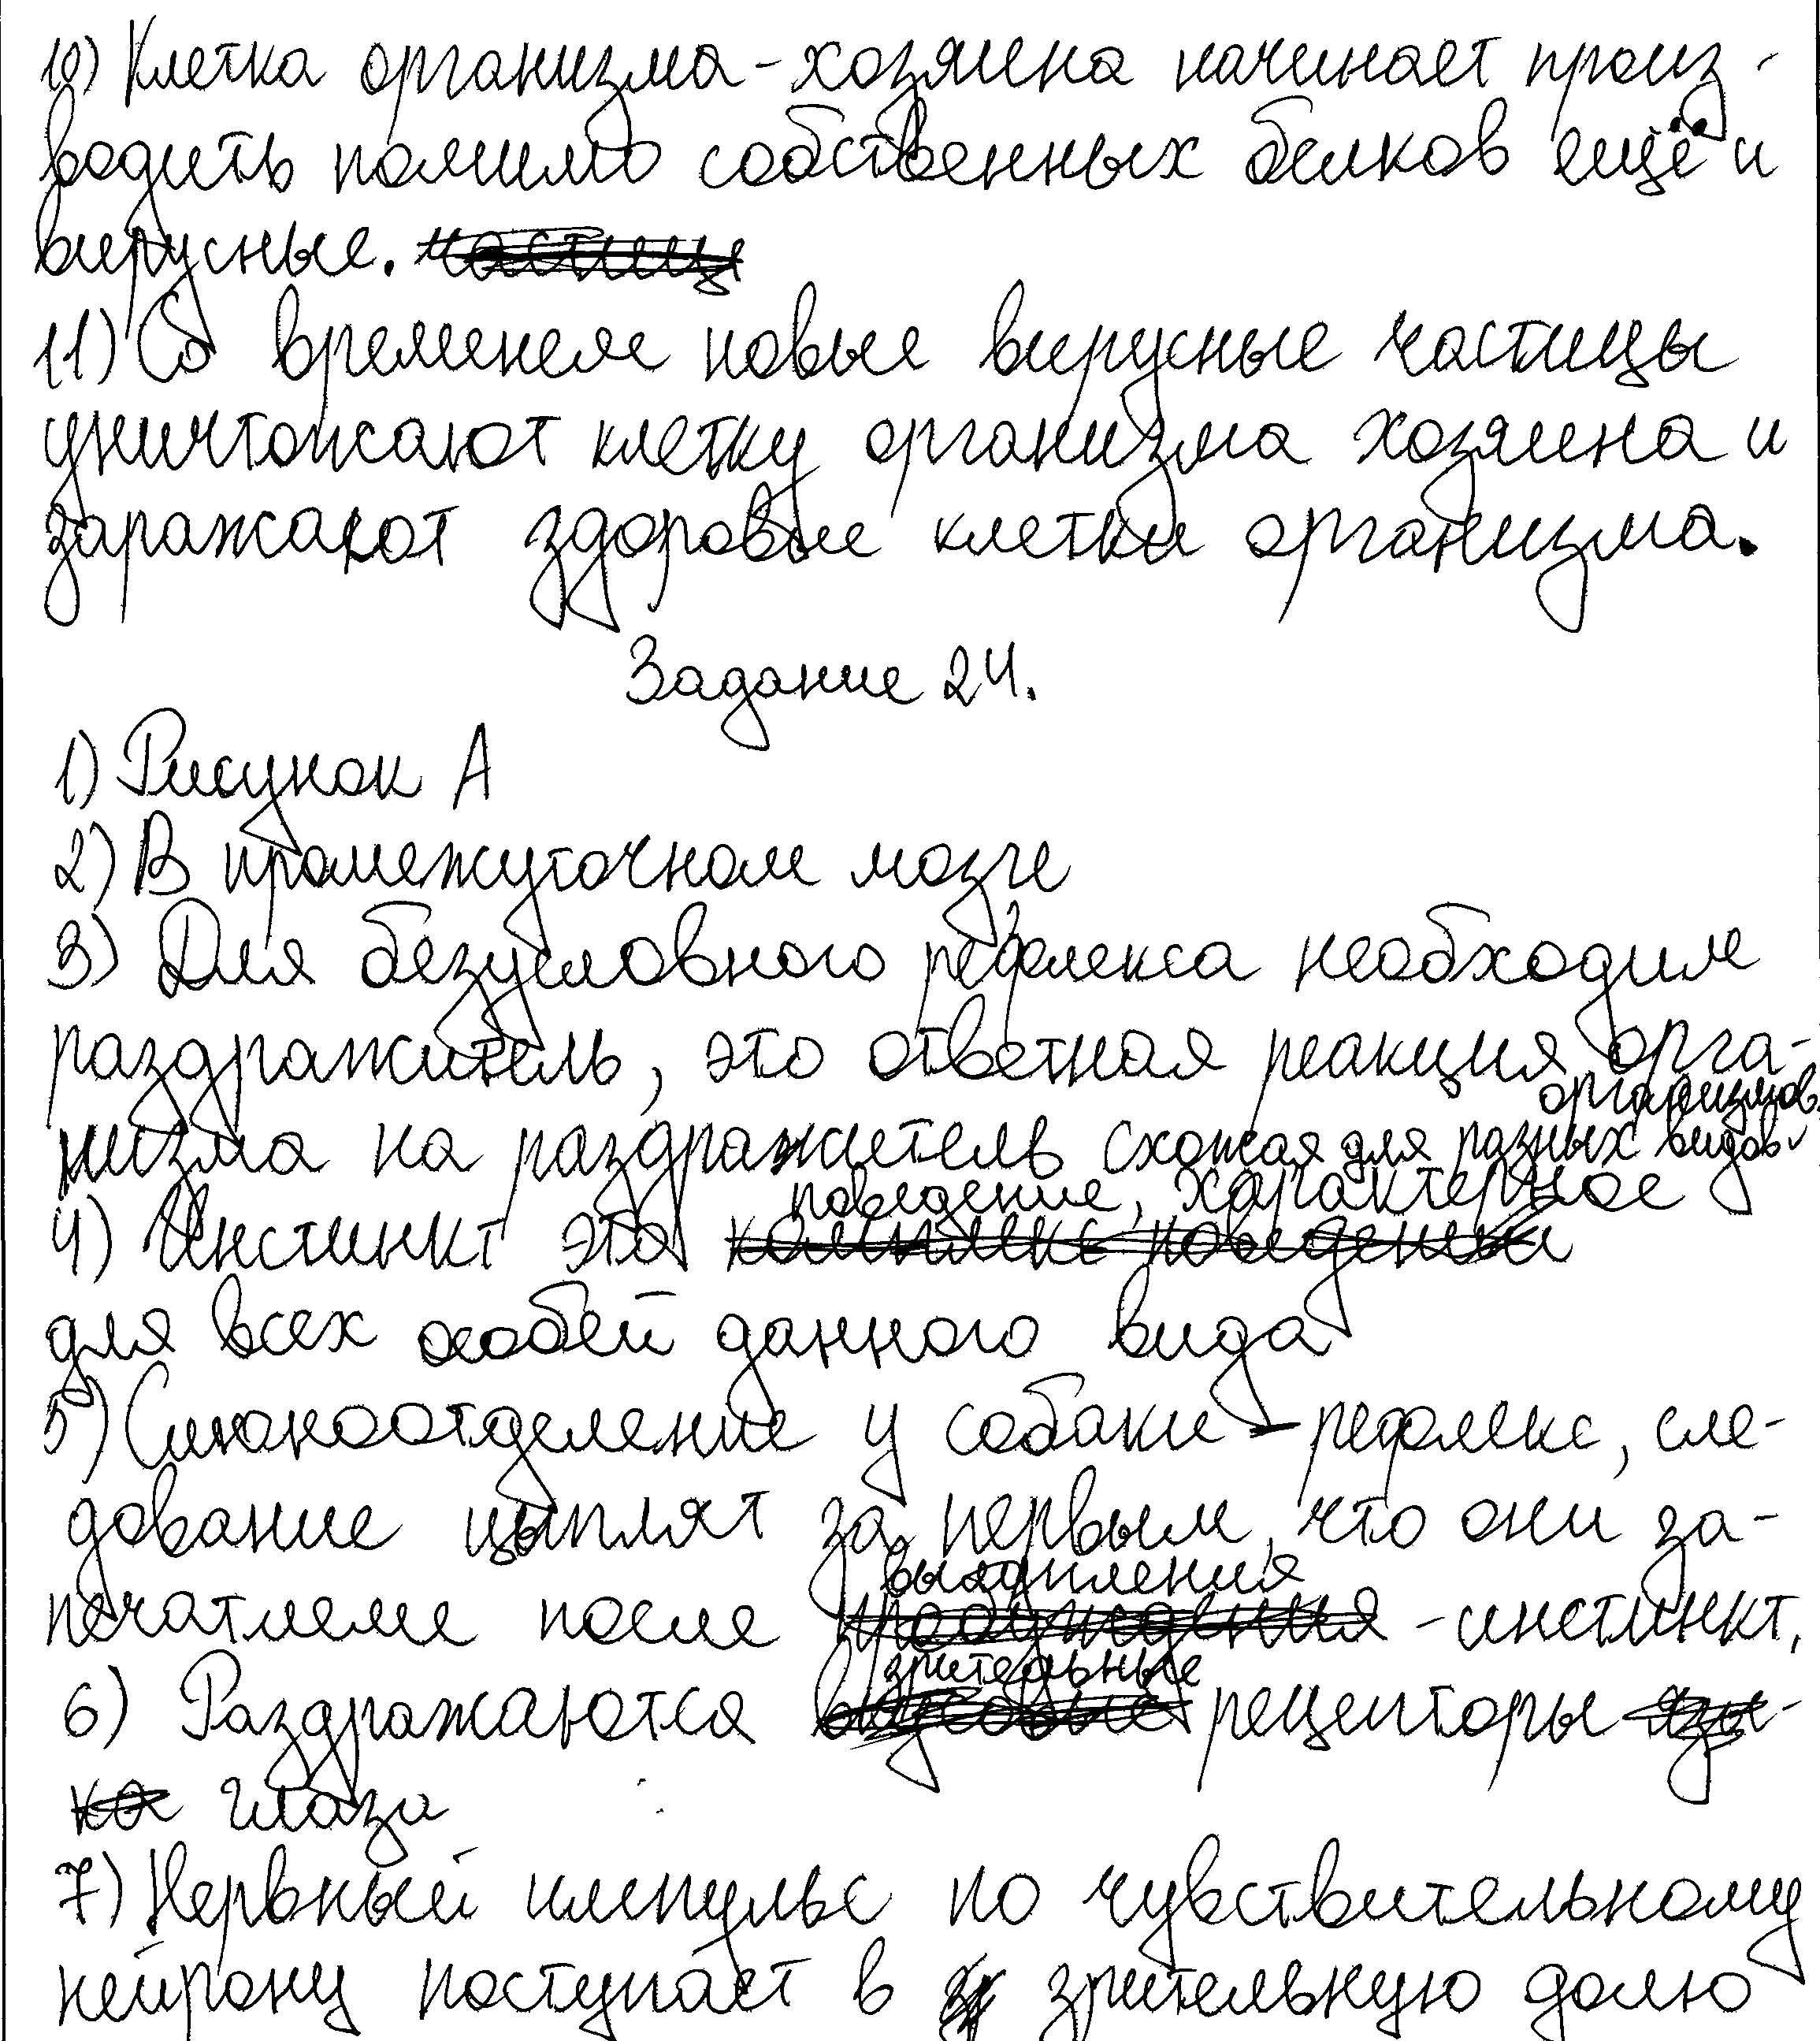 10) Клетка организма-хозяина начинает произ-
водить помимо собственных белков ещё и
вирусные. частицы
11) Со временем новые вирусные частицы
уничтожают клетку организма хозяина и
заражают здоровые клетки организма.
Задание 24.
1) Рисунок А
2) В промежуточном мозге
3) Для безусловного рефлекса необходим
раздражитель, это ответная реакция орга-
низма на раздражитель схожая для разных видов
организмов.
поведение, характерное
4) Инстинкт это комплекс поведения
для всех особей данного вида
5) Слюноотделение у собаки - рефлекс, сле-
дование цыплят за первым, что они за-
вылупления
печатлеме после - инстинкт.
зрительные
6) Раздражаются вкусовые рецепторы язы-
ка глаза
7) Нервный импульс по чувствительному
нейрону поступает в зрительную долю